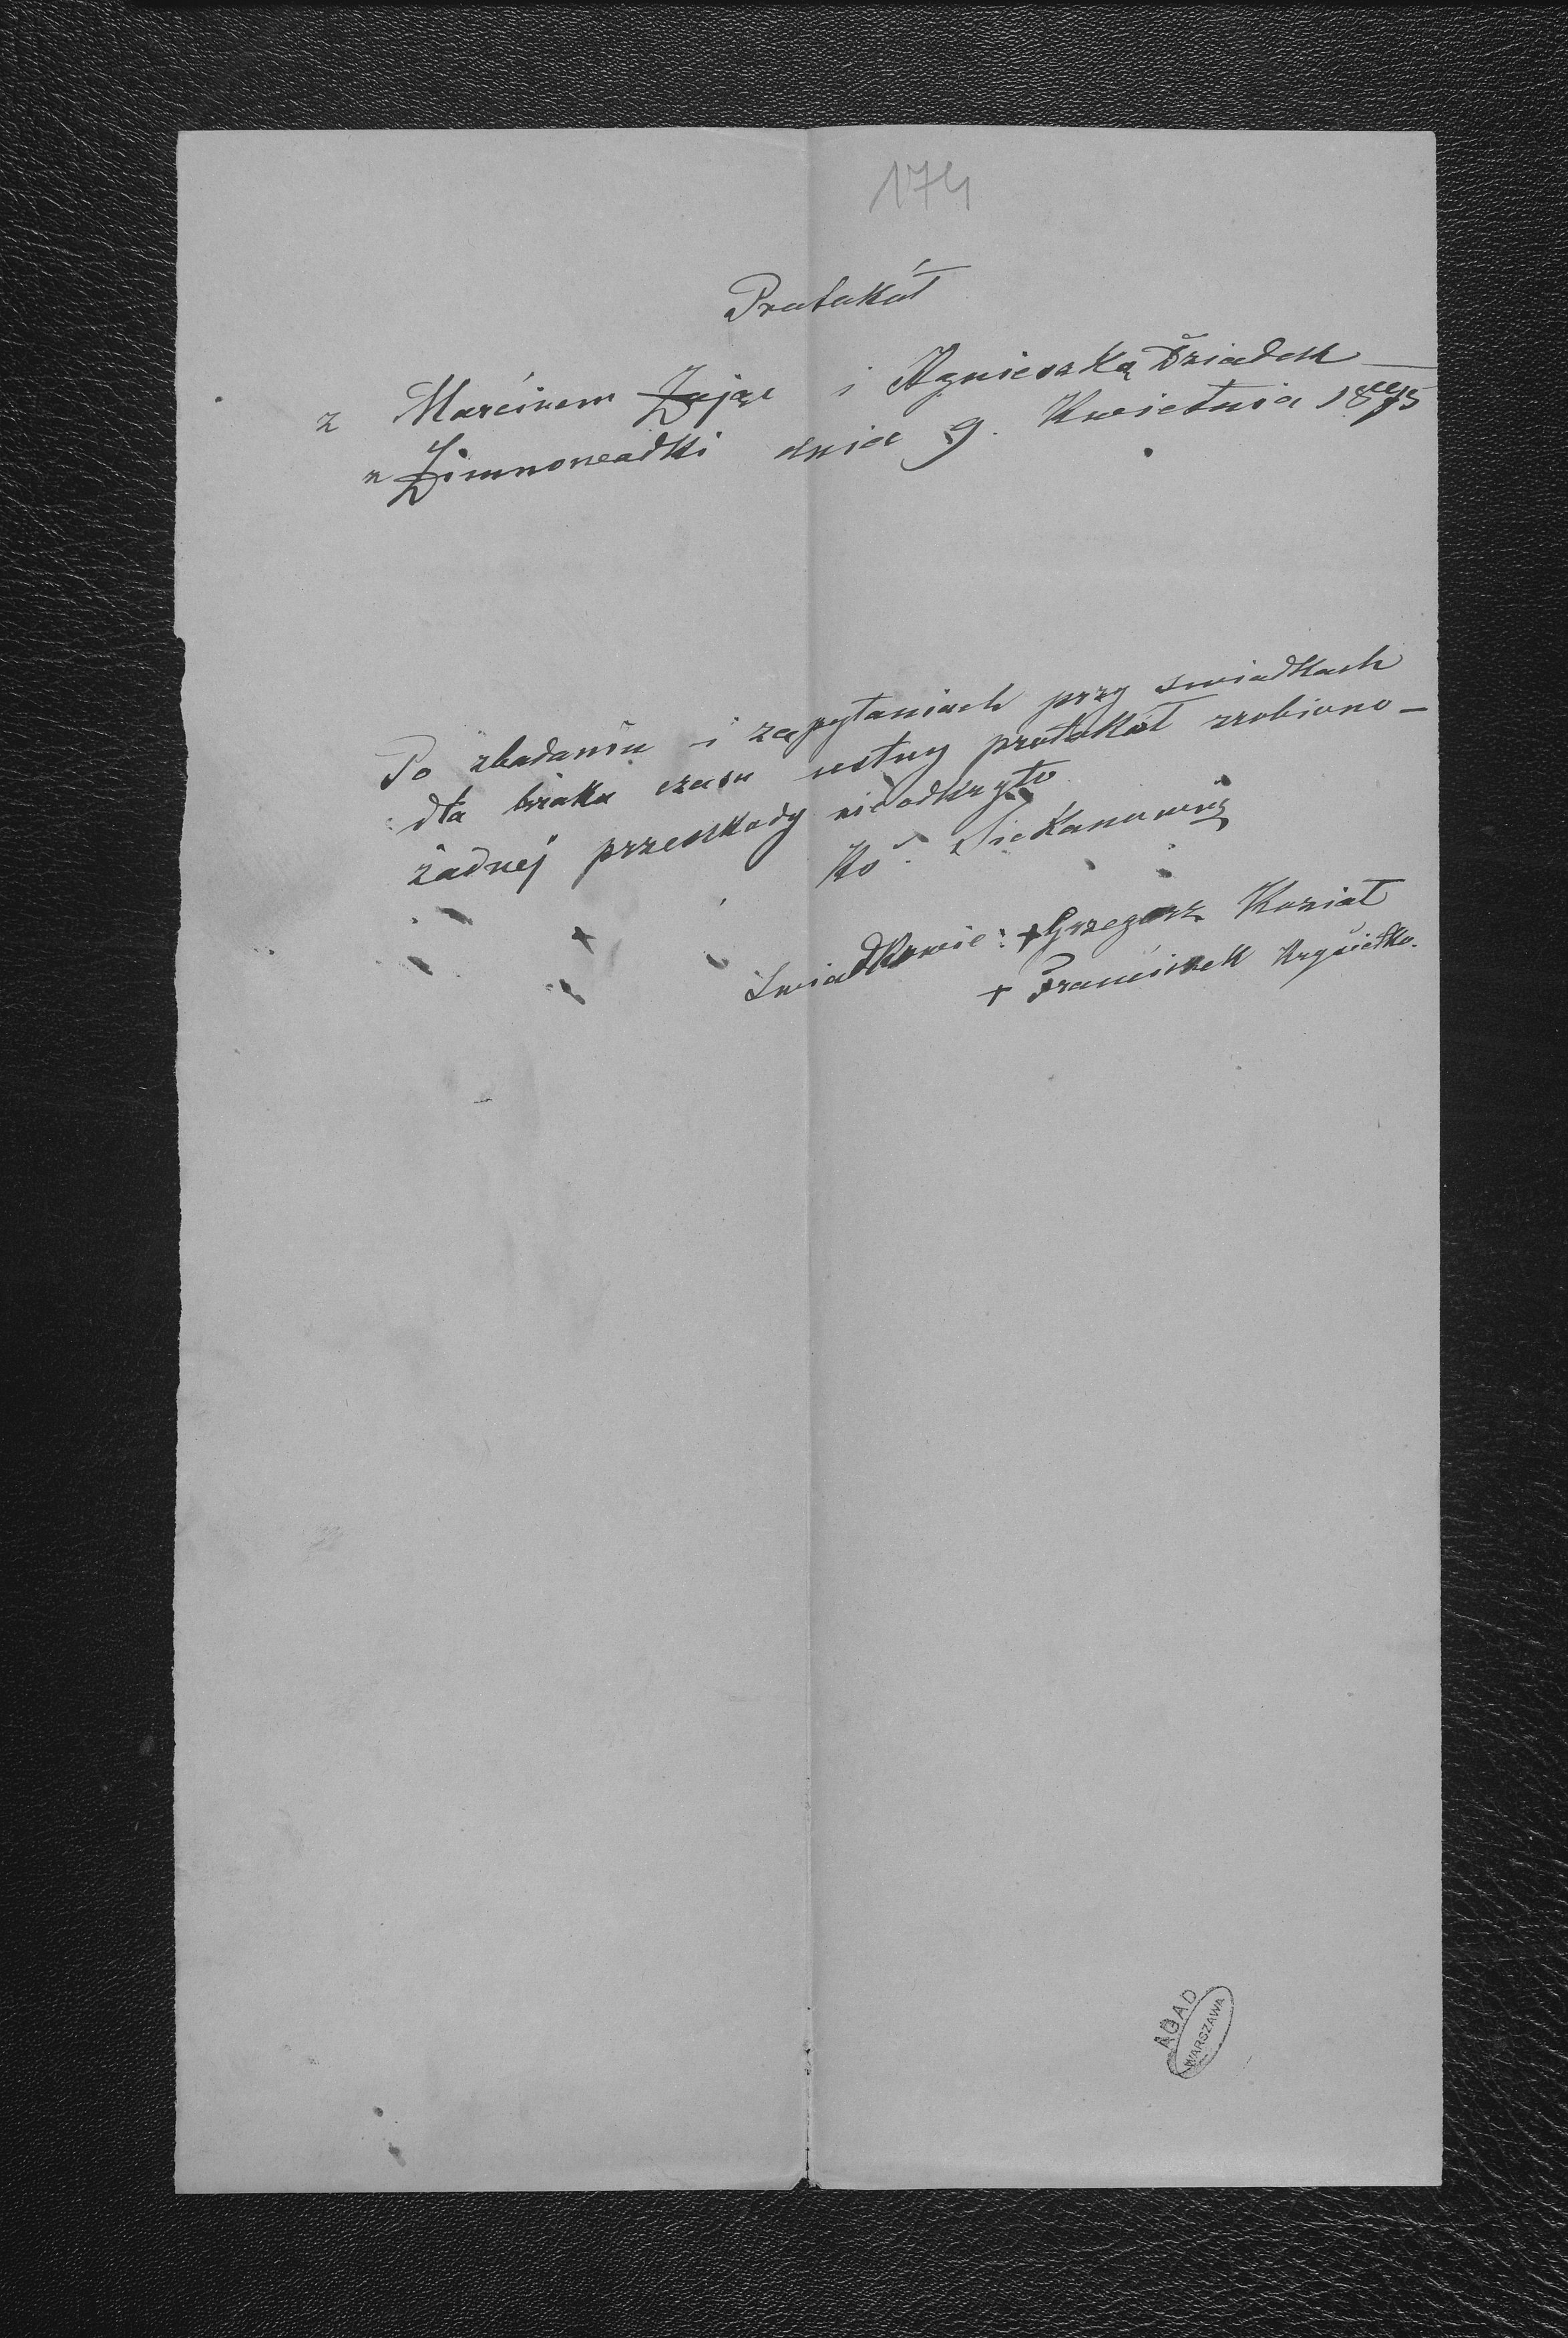 174
Protokół
z Marcinem Zając i Agnieszką Dziadek —
z Zimnowodki dnia 9. Kwietnia 1875
Po zbadaniu i zapytaniach przy swiadkach
dla braku czasu ustny protokół zrobiono —
żadnej przeszkody nieodkryto
Swiadkowie: + Grzegorz Kozioł
+ Franciszek
AGAD
WARSZAWA